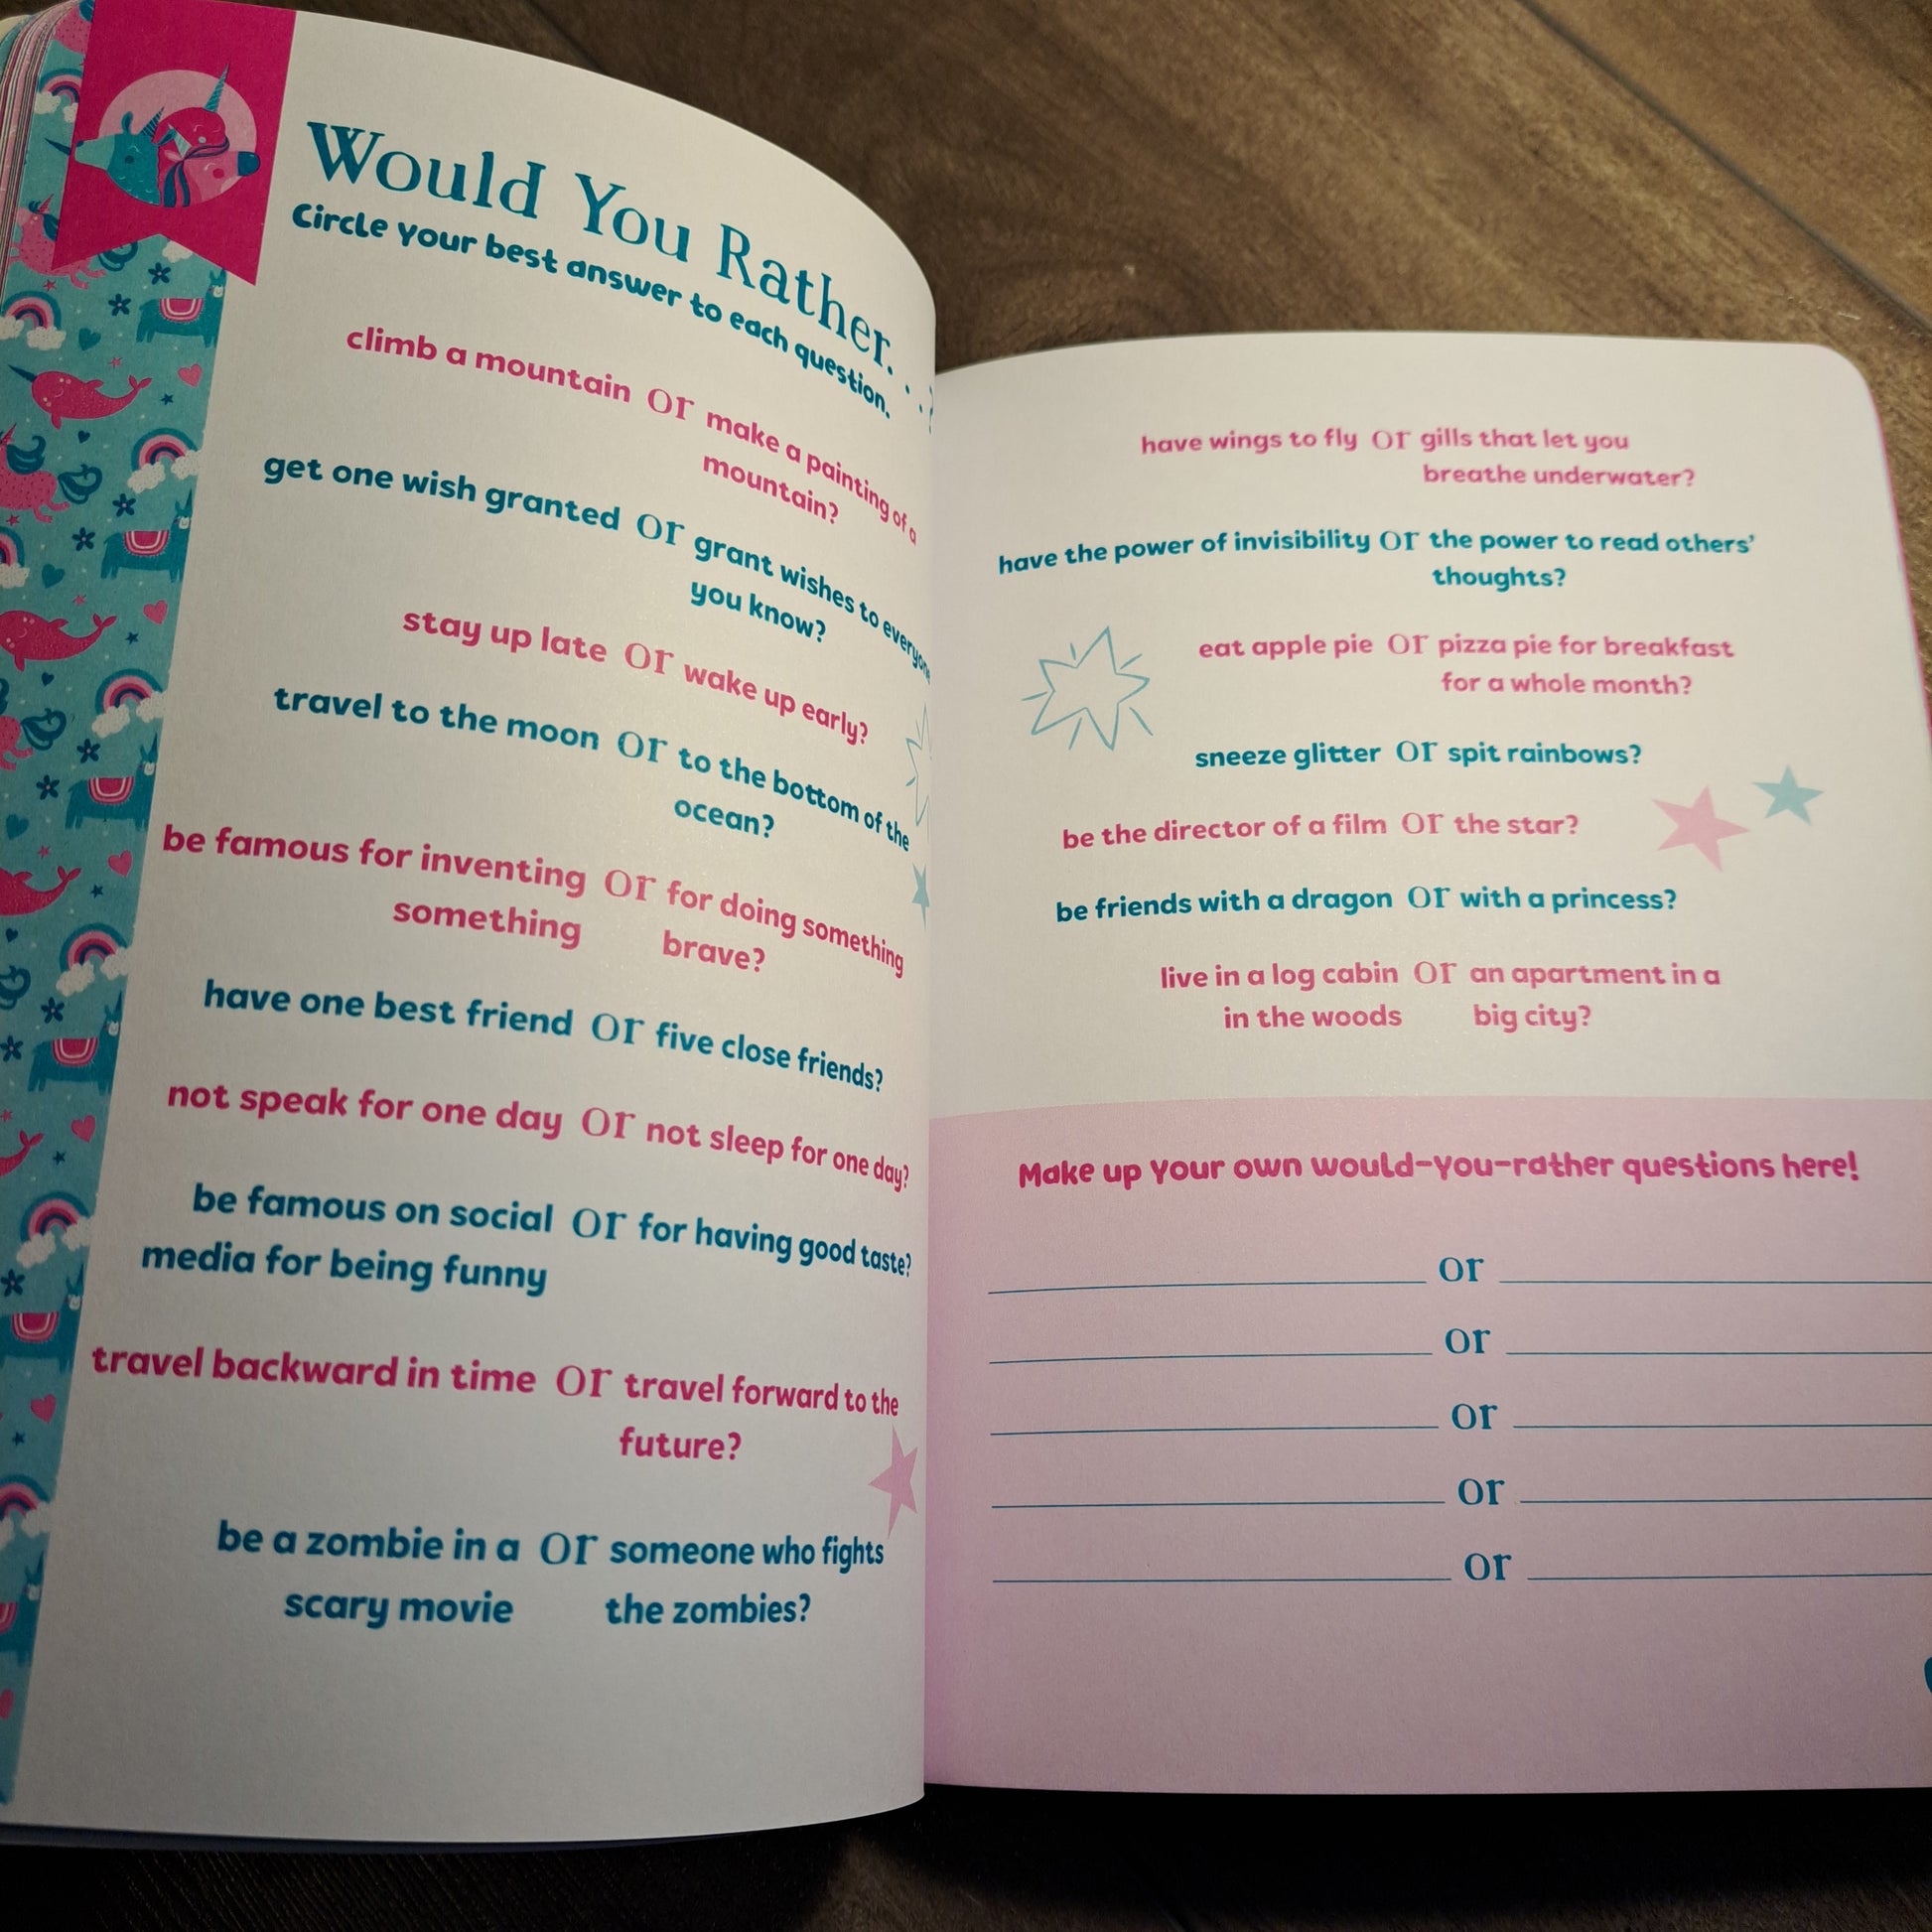 Would You Rather. . .?
Circle your best answer to each question.
climb a mountain or make a painting of a
mountain?
get one wish granted or grant wishes to everyone
you know?
stay up late or wake up early?
travel to the moon or to the bottom of the
ocean?
be famous for inventing or for doing something
something brave?
have one best friend or five close friends?
not speak for one day or not sleep for one day?
be famous on social or for having good taste?
media for being funny
travel backward in time or travel forward to the
future?
be a zombie in a or someone who fights
scary movie the zombies?
have wings to fly or gills that let you
breathe underwater?
have the power of invisibility or the power to read others'
thoughts?
eat apple pie or pizza pie for breakfast
for a whole month?
sneeze glitter or spit rainbows?
be the director of a film or the star?
be friends with a dragon or with a princess?
live in a log cabin or an apartment in a
in the woods big city?
Make up your own would-you-rather questions here!
or
or
or
or
or